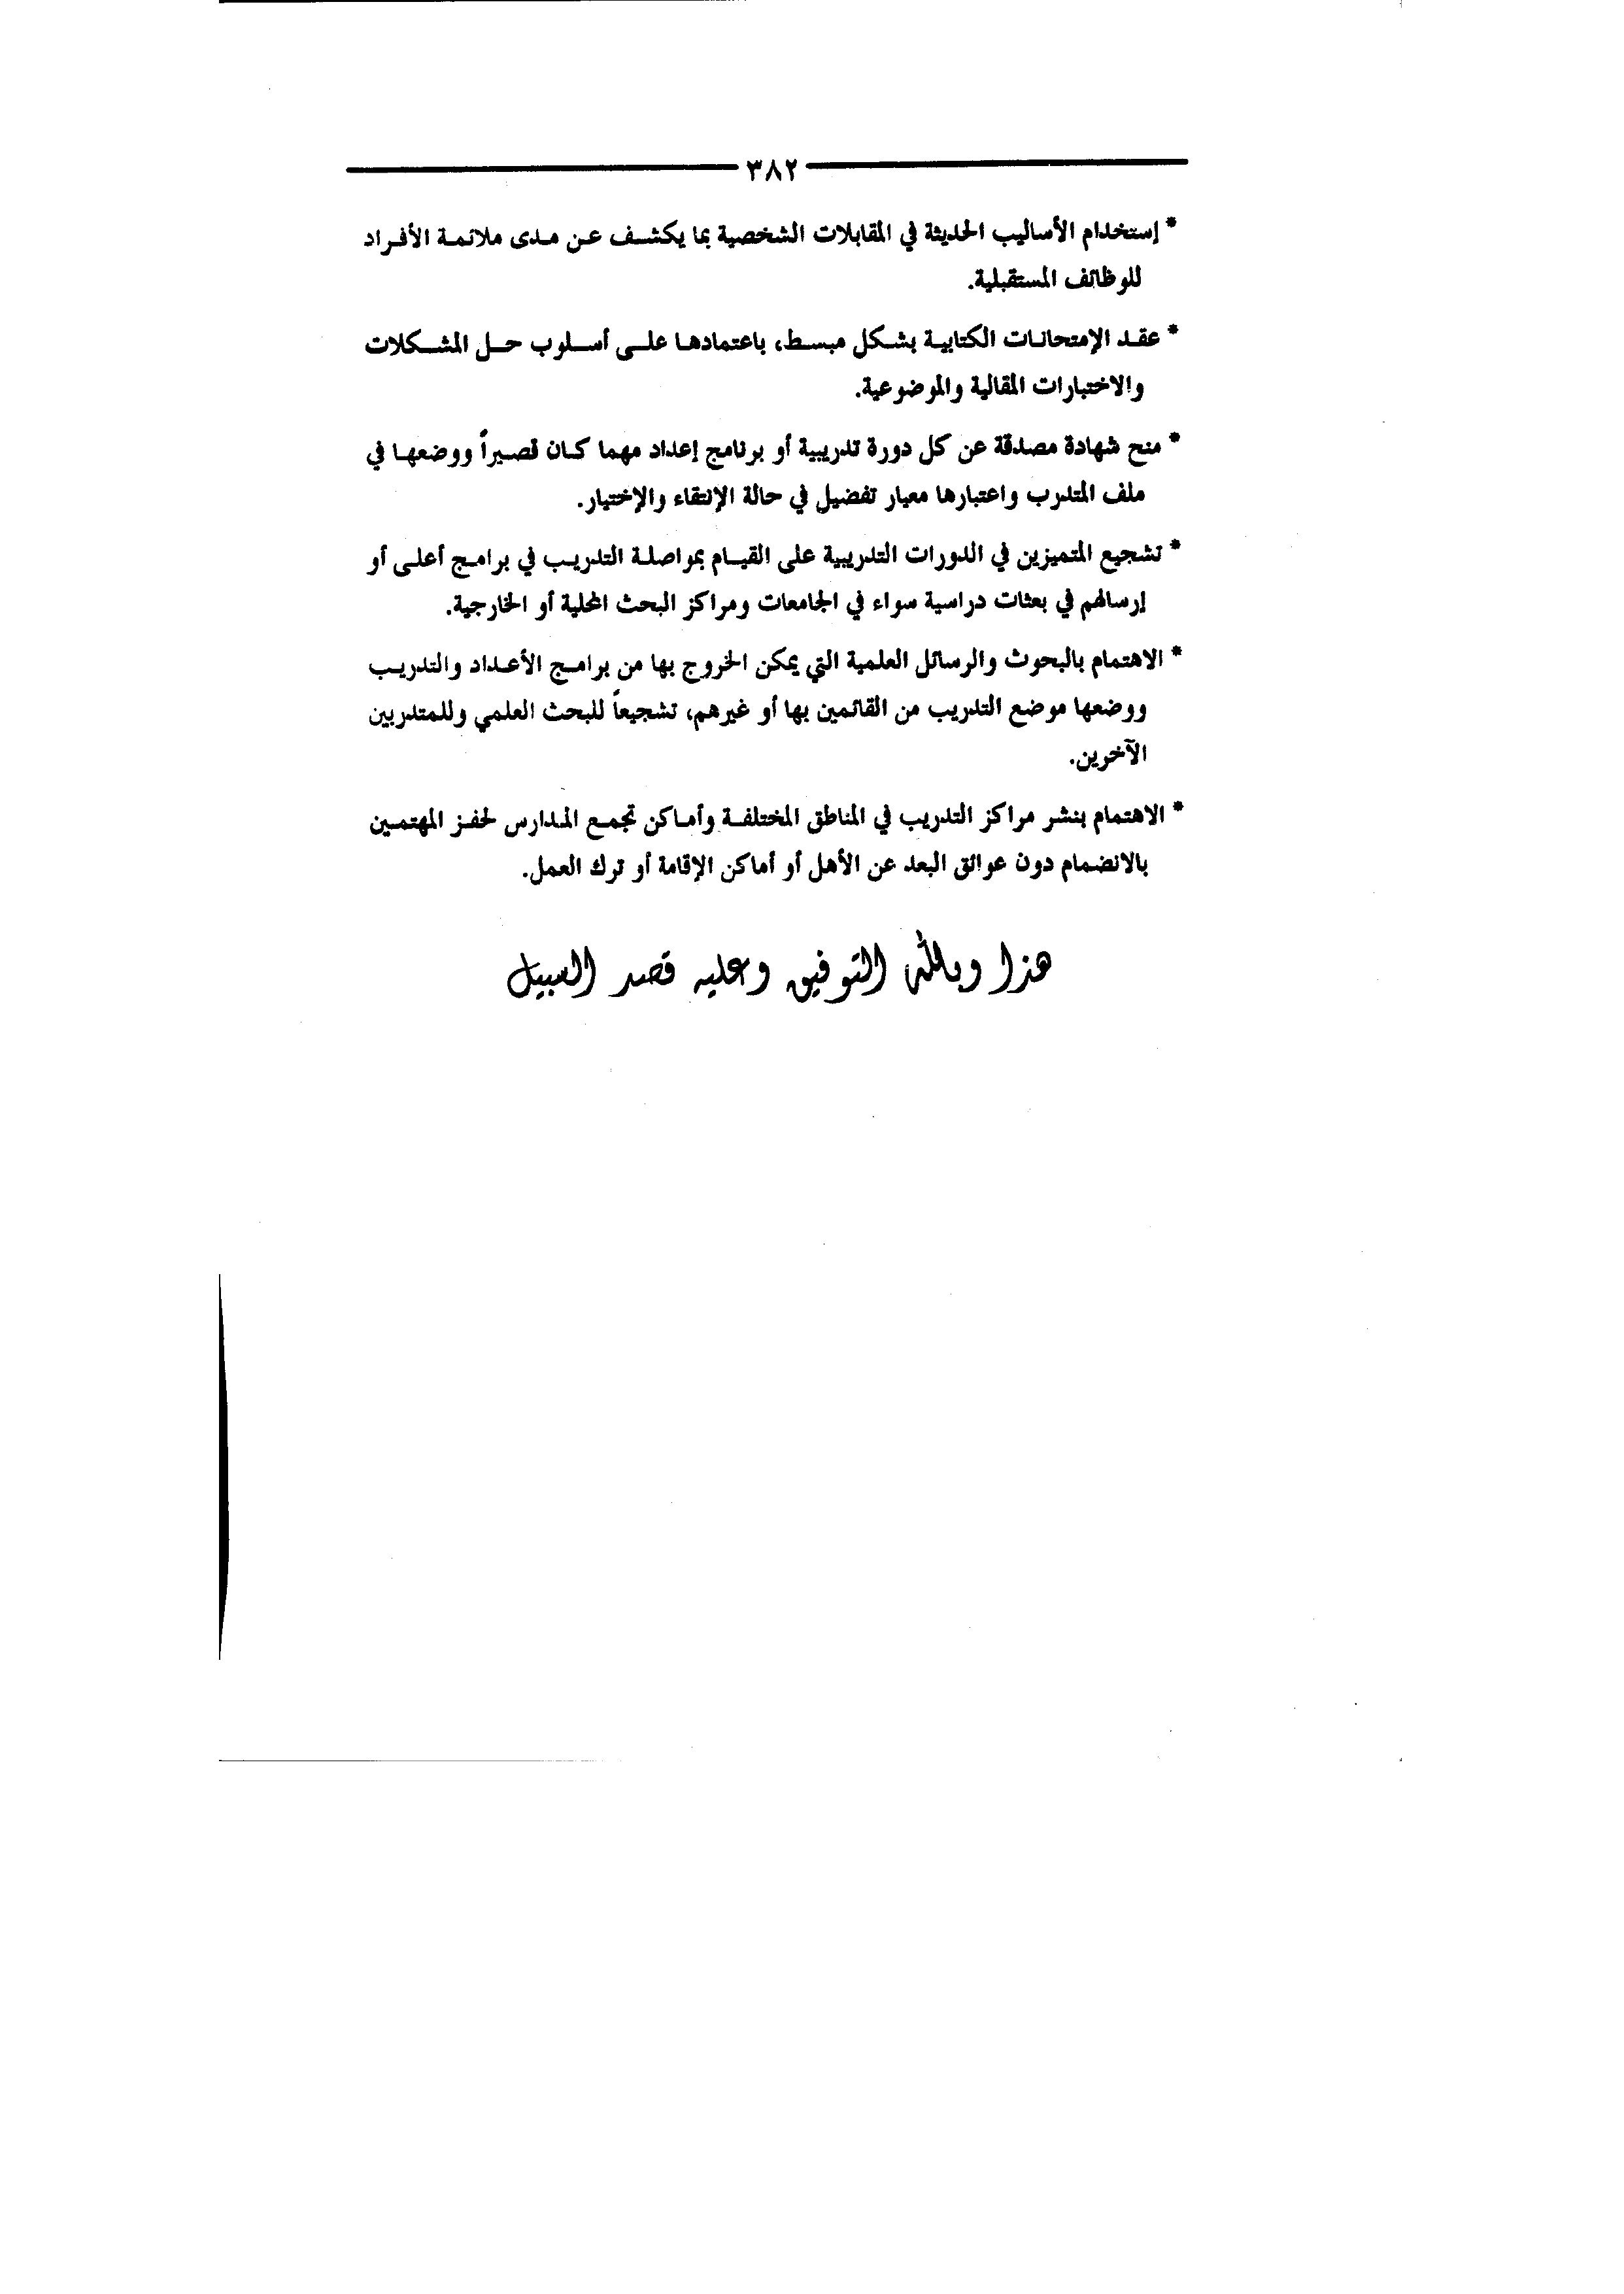 ٣٨٢
* إستخدام الأساليب الحديثة في المقابلات الشخصية بما يكشف عن مدى ملائمة الأفراد
للوظائف المستقبلية.
* عقد الإمتحانات الكتابية بشكل مبسط، باعتمادها على أسلوب حل المشكلات
والاختبارات المقالية والموضوعية.
* منح شهادة مصدقة عن كل دورة تدريبية أو برنامج إعداد مهما كان قصيراً ووضعها في
ملف المتدرب واعتبارها معيار تفضيل في حالة الإنتقاء والإختيار.
* تشجيع المتميزين في الدورات التدريبية على القيام بمواصلة التدريب في برامج أعلى أو
إرسالهم في بعثات دراسية سواء في الجامعات ومراكز البحث المحلية أو الخارجية.
* الاهتمام بالبحوث والرسائل العلمية التي يمكن الخروج بها من برامج الأعداد والتدريب
ووضعها موضع التدريب من القائمين بها أو غيرهم، تشجيعاً للبحث العلمي وللمتدربين
الآخرين.
* الاهتمام بنشر مراكز التدريب في المناطق المختلفة وأماكن تجمع المدارس لحفز المهتمين
بالانضمام دون عوائق البعد عن الأهل أو أماكن الإقامة أو ترك العمل.
هذا وبالله التوفيق وعليه قصد السبيل